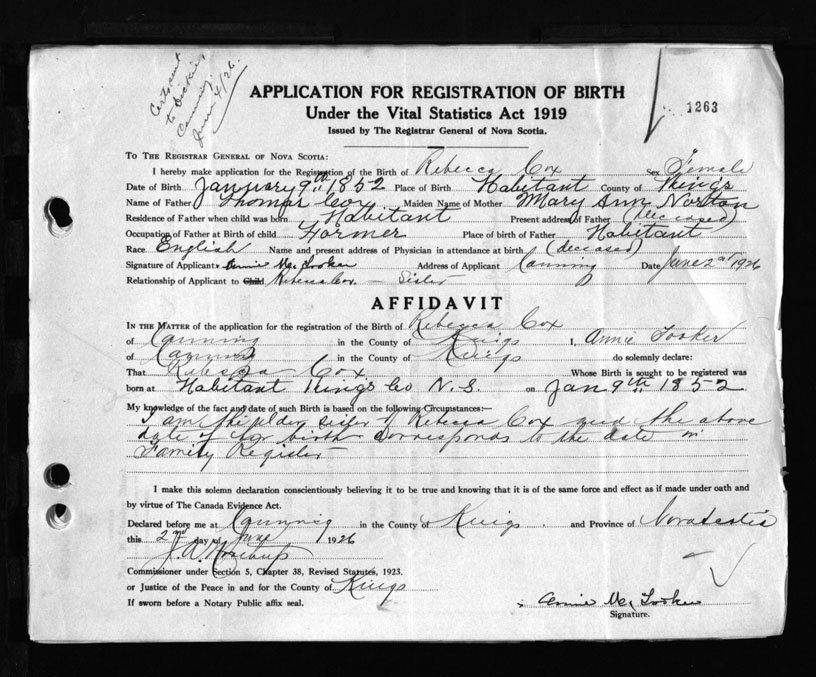 Cert sent
to Dickie,
Canning,
June 4/26.
1263
APPLICATION FOR REGISTRATION OF BIRTH
Under the Vital Statistics Act 1919
Issued by The Registrar General of Nova Scotia.
TO THE REGISTRAR GENERAL OF NOVA SCOTIA:
I hereby make application for the Registration of the Birth of Rebecca Cox Sex Female
Date of Birth January 9th 1852 Place of Birth Habitant County of Kings
Name of Father Thomas Cox Maiden Name of Mother Mary Ann Norton
Residence of Father when child was born Habitant Present address of Father (deceased)
Occupation of Father at Birth of child Farmer Place of birth of Father Habitant
Race English Name and present address of Physician in attendance at birth (deceased)
Signature of Applicant Annie M. Tooker Address of Applicant Canning Date June 2nd 1926
Relationship of Applicant to Child Rebecca Cox. - Sister
AFFIDAVIT
IN THE MATTER of the application for the registration of the Birth of Rebecca Cox
of Canning in the County of Kings I, Annie Tooker
of Canning in the County of Kings do solemnly declare:
That Rebecca Cox Whose Birth is sought to be registered was
born at Habitant Kings Co N.S. on Jan 9th 1852
My knowledge of the fact and date of such Birth is based on the following Circumstances:—
I am the elder sister of Rebecca Cox and the above
date of her birth corresponds to the date in
Family Register
I make this solemn declaration conscientiously believing it to be true and knowing that it is of the same force and effect as if made under oath and
by virtue of The Canada Evidence Act.
Declared before me at Canning in the County of Kings and Province of Nova Scotia
this 2nd day of June 1926
Commissioner under Section 5, Chapter 38, Revised Statutes, 1923.
or Justice of the Peace in and for the County of Kings
If sworn before a Notary Public affix seal.
Annie M. Tooker
Signature.